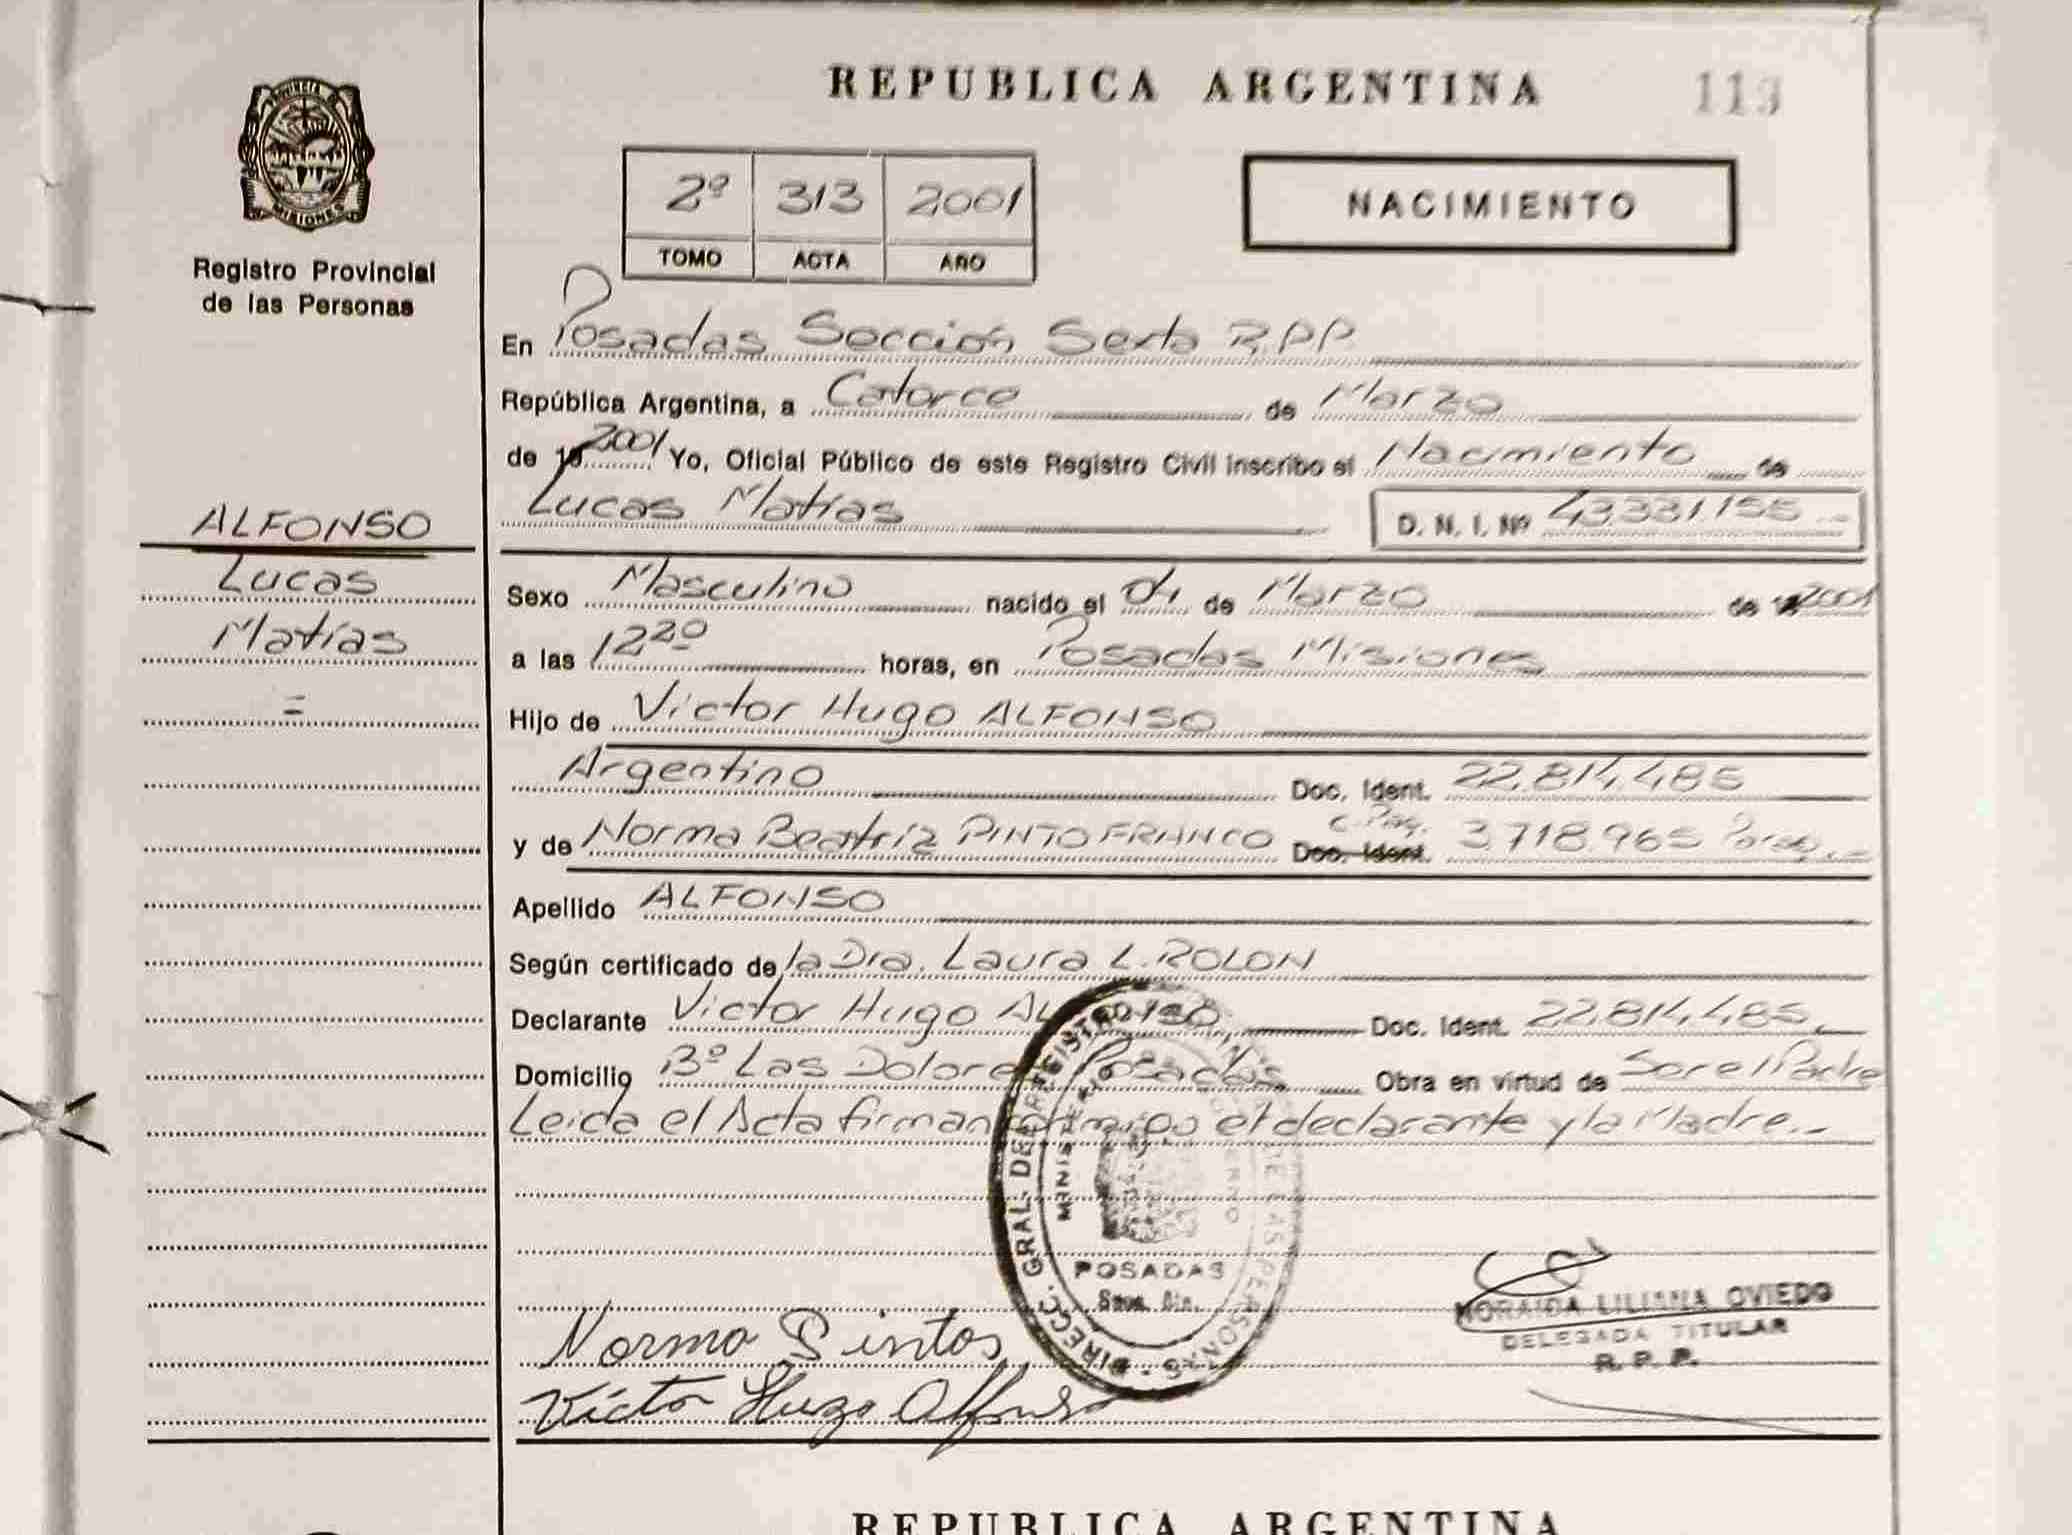 REPUBLICA ARGENTINA
113
PROVINCIA DE
MISIONES
Registro Provincial
de las Personas
2º 313 2001
TOMO ACTA AÑO
NACIMIENTO
En Posadas Sección Sexta R.P.P
República Argentina, a Catorce de Marzo
de 19 2001 Yo, Oficial Público de este Registro Civil inscribo el Nacimiento de
Lucas Matías D. N. I. Nº 43.331.155
ALFONSO
Lucas
Matías
=
Sexo Masculino nacido el 01 de Marzo de 2001
a las 12 20 horas, en Posadas Misiones
Hijo de Victor Hugo ALFONSO
Argentino Doc. Ident. 22.814.485
y de Norma Beatriz PINTO FRANCO Doc. Ident. C. Paq. 3.718.965
Apellido ALFONSO
Según certificado de la Dra. Laura L. ROLON
Declarante Victor Hugo ALFONSO Doc. Ident. 22.814.485
Domicilio Bº Las Dolores Posadas Obra en virtud de Ser el Padre
Leida el Acta firman conmigo el declarante y la Madre.
DIRECC. GRAL. DE REGISTRO DE LAS PERSONAS
MINISTERIO GOBIERNO
POSADAS
Norma Pintos
Victor Hugo Alfonso
MORAIDA LILIANA OVIEDO
DELEGADA TITULAR
R. P. P.
REPUBLICA ARGENTINA